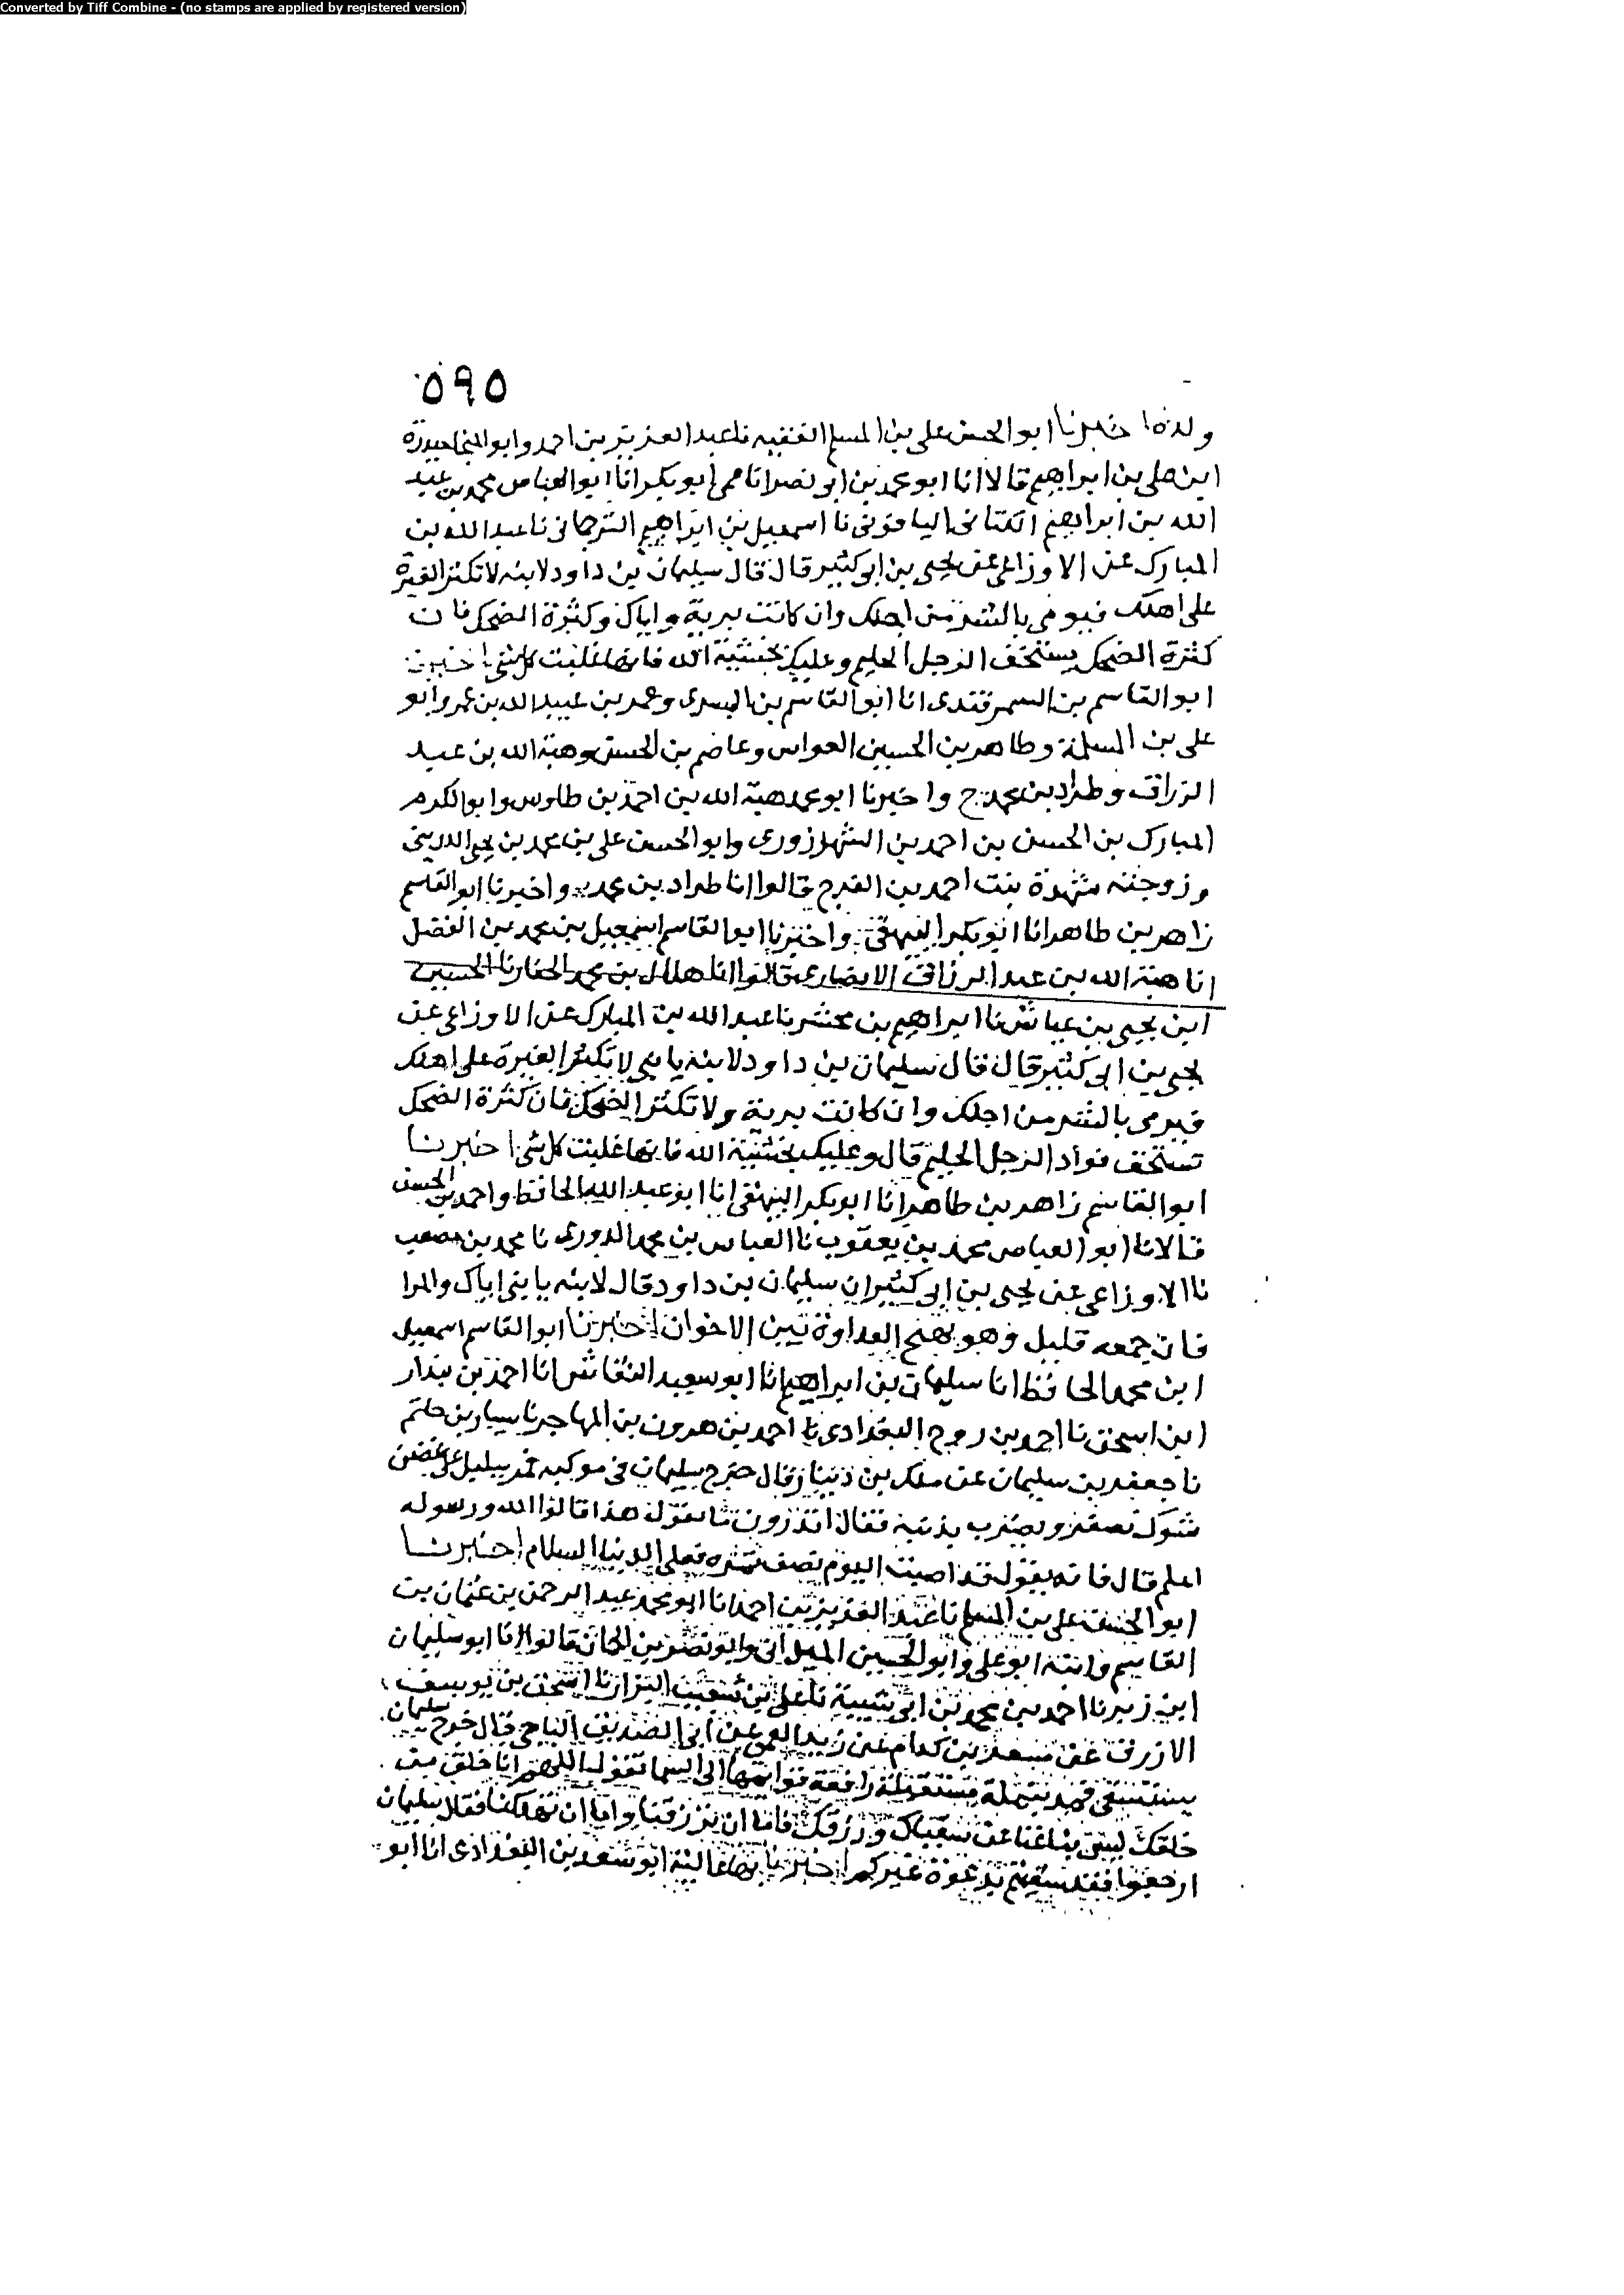 Converted by Tiff Combine - (no stamps are applied by registered version)
٥٩٥
ولده اخبرنا ابو الحسن علي بن المسلم الفقيه نا عبد العزيز بن احمد وابو النجا حيدرة
ابن علي بن ابراهيم قالا انا ابو محمد بن ابو نصر انا عمي ابو بكر انا ابو العباس محمد بن عبد
الله بن ابراهيم الكتاني اليافوني نا اسمعيل بن ابراهيم الترجماني نا عبد الله بن
المبارك عن الاوزاعي عن يحيى بن ابو كثير قال قال سليمان بن داود لابنه لا تكثر الغيرة
على اهلك فيومى بالشر من اجلك وان كانت برية واياك وكثرة الضحك فان
كثرة الضحك يستخف الرجل الحليم وعليك بخشية الله فانها غلبت كل شي اخبرنا
ابو القاسم بن السمرقندي انا ابو القاسم بن البسري وعمر بن عبيد الله بن عمر وابو
علي بن المسلمة وطاهر بن الحسين القواس وعاصم بن الحسن وهبة الله بن عبد
الرزاق وطراد بن محمد ح واخبرنا ابو محمد هبة الله بن احمد بن طاوس وابو الكرم
المبارك بن الحسن بن احمد بن الشهرزوري وابو الحسن علي بن محمد بن يحيى الدريني
وزوجته شهدة بنت احمد بن الفرج قالوا انا طراد بن محمد واخبرنا ابو القاسم
زاهر بن طاهر انا ابو بكر البيهقي واخبرنا ابو القاسم اسمعيل بن محمد بن الفضل
انا هبة الله بن عبد الرزاق الانصاري قالوا انا هلال بن محمد الحفار نا الحسين
ابن يحيى بن عياش نا ابراهيم بن محشر نا عبد الله بن المبارك عن الاوزاعي عن
يحيى بن ابي كثير قال قال سليمان بن داود لابنه يا بني لا تكثر الغيرة على اهلك
فيرمى بالشر من اجلك وان كانت برية ولا تكثر الضحك فان كثرة الضحك
تستخف فواد الرجل الحليم قال وعليك بخشية الله فانها غلبت كل شي اخبرنا
ابو القاسم زاهر بن طاهر انا ابو بكر البيهقي انا ابو عبد الله الحافظ واحمد بن الحسن
قالا نا ابو العباس محمد بن يعقوب نا العباس بن محمد الدوري نا محمد بن مصعب
نا الاوزاعي عن يحيى بن ابي كثير ان سليمان بن داود قال لابنه يا بني اياك والمرا
فان جمعه قليل وهو يهيج العداوة بين الاخوان اخبرنا ابو القاسم اسمعيل
ابن محمد الحافظ انا سليمان بن ابراهيم انا ابو سعيد النقاش انا احمد بن بندار
ابن اسحق نا احمد بن روح البغدادي نا احمد بن هرون بن المهاجر نا سيار بن حاتم
نا جعفر بن سليمان عن ملك بن دينار قال خرج سليمان في موكبه فمر ببلبل على غصن
شوك يصفر ويضرب بذنبه فقال اتدرون ما يقول هذا قالوا الله ورسوله
اعلم قال فانه يقول قد اصبت اليوم نصف تمره فعلى الدنيا السلام اخبرنا
ابو الحسن علي بن المسلم نا عبد العزيز بن احمد انا ابو محمد عبد الرحمن بن عثمان بن
القاسم وابنه ابو علي وابو الحسين الميداني وابو نصر بن الجان قالوا انا ابو سليمان
ابن زبر نا احمد بن محمد بن ابي شيبة نا علي بن شعيب البزاز نا اسحق بن يوسف
الازرق عن مسعر بن كدام عن زيد العمي عن ابي الصديق الناجي قال خرج سليمان
يستسقي فمر بنملة مستقلة رافعة قوايمها الى السما تقول اللهم انا خلق من
خلقك ليس بنا غنا عن سقياك ورزقك فاما ان ترزقنا واما ان تهلكنا فقال سليمان
ارجعوا فقد سقيتم بدعوة غيركم اخبرنا بها عالية ابو سعد بن البغدادي انا ابو